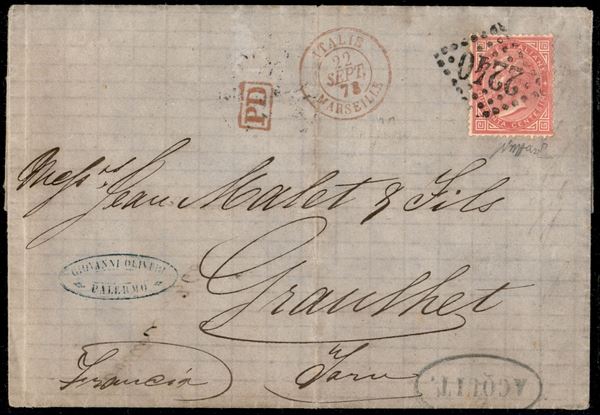 ITALIE
22
SEPT.
73
MARSEILLE
PD
2240
Mess.rs Jean Malet & Fils
GIOVANNI OLIVERI
PALERMO
Graulhet
Francia
Tarn